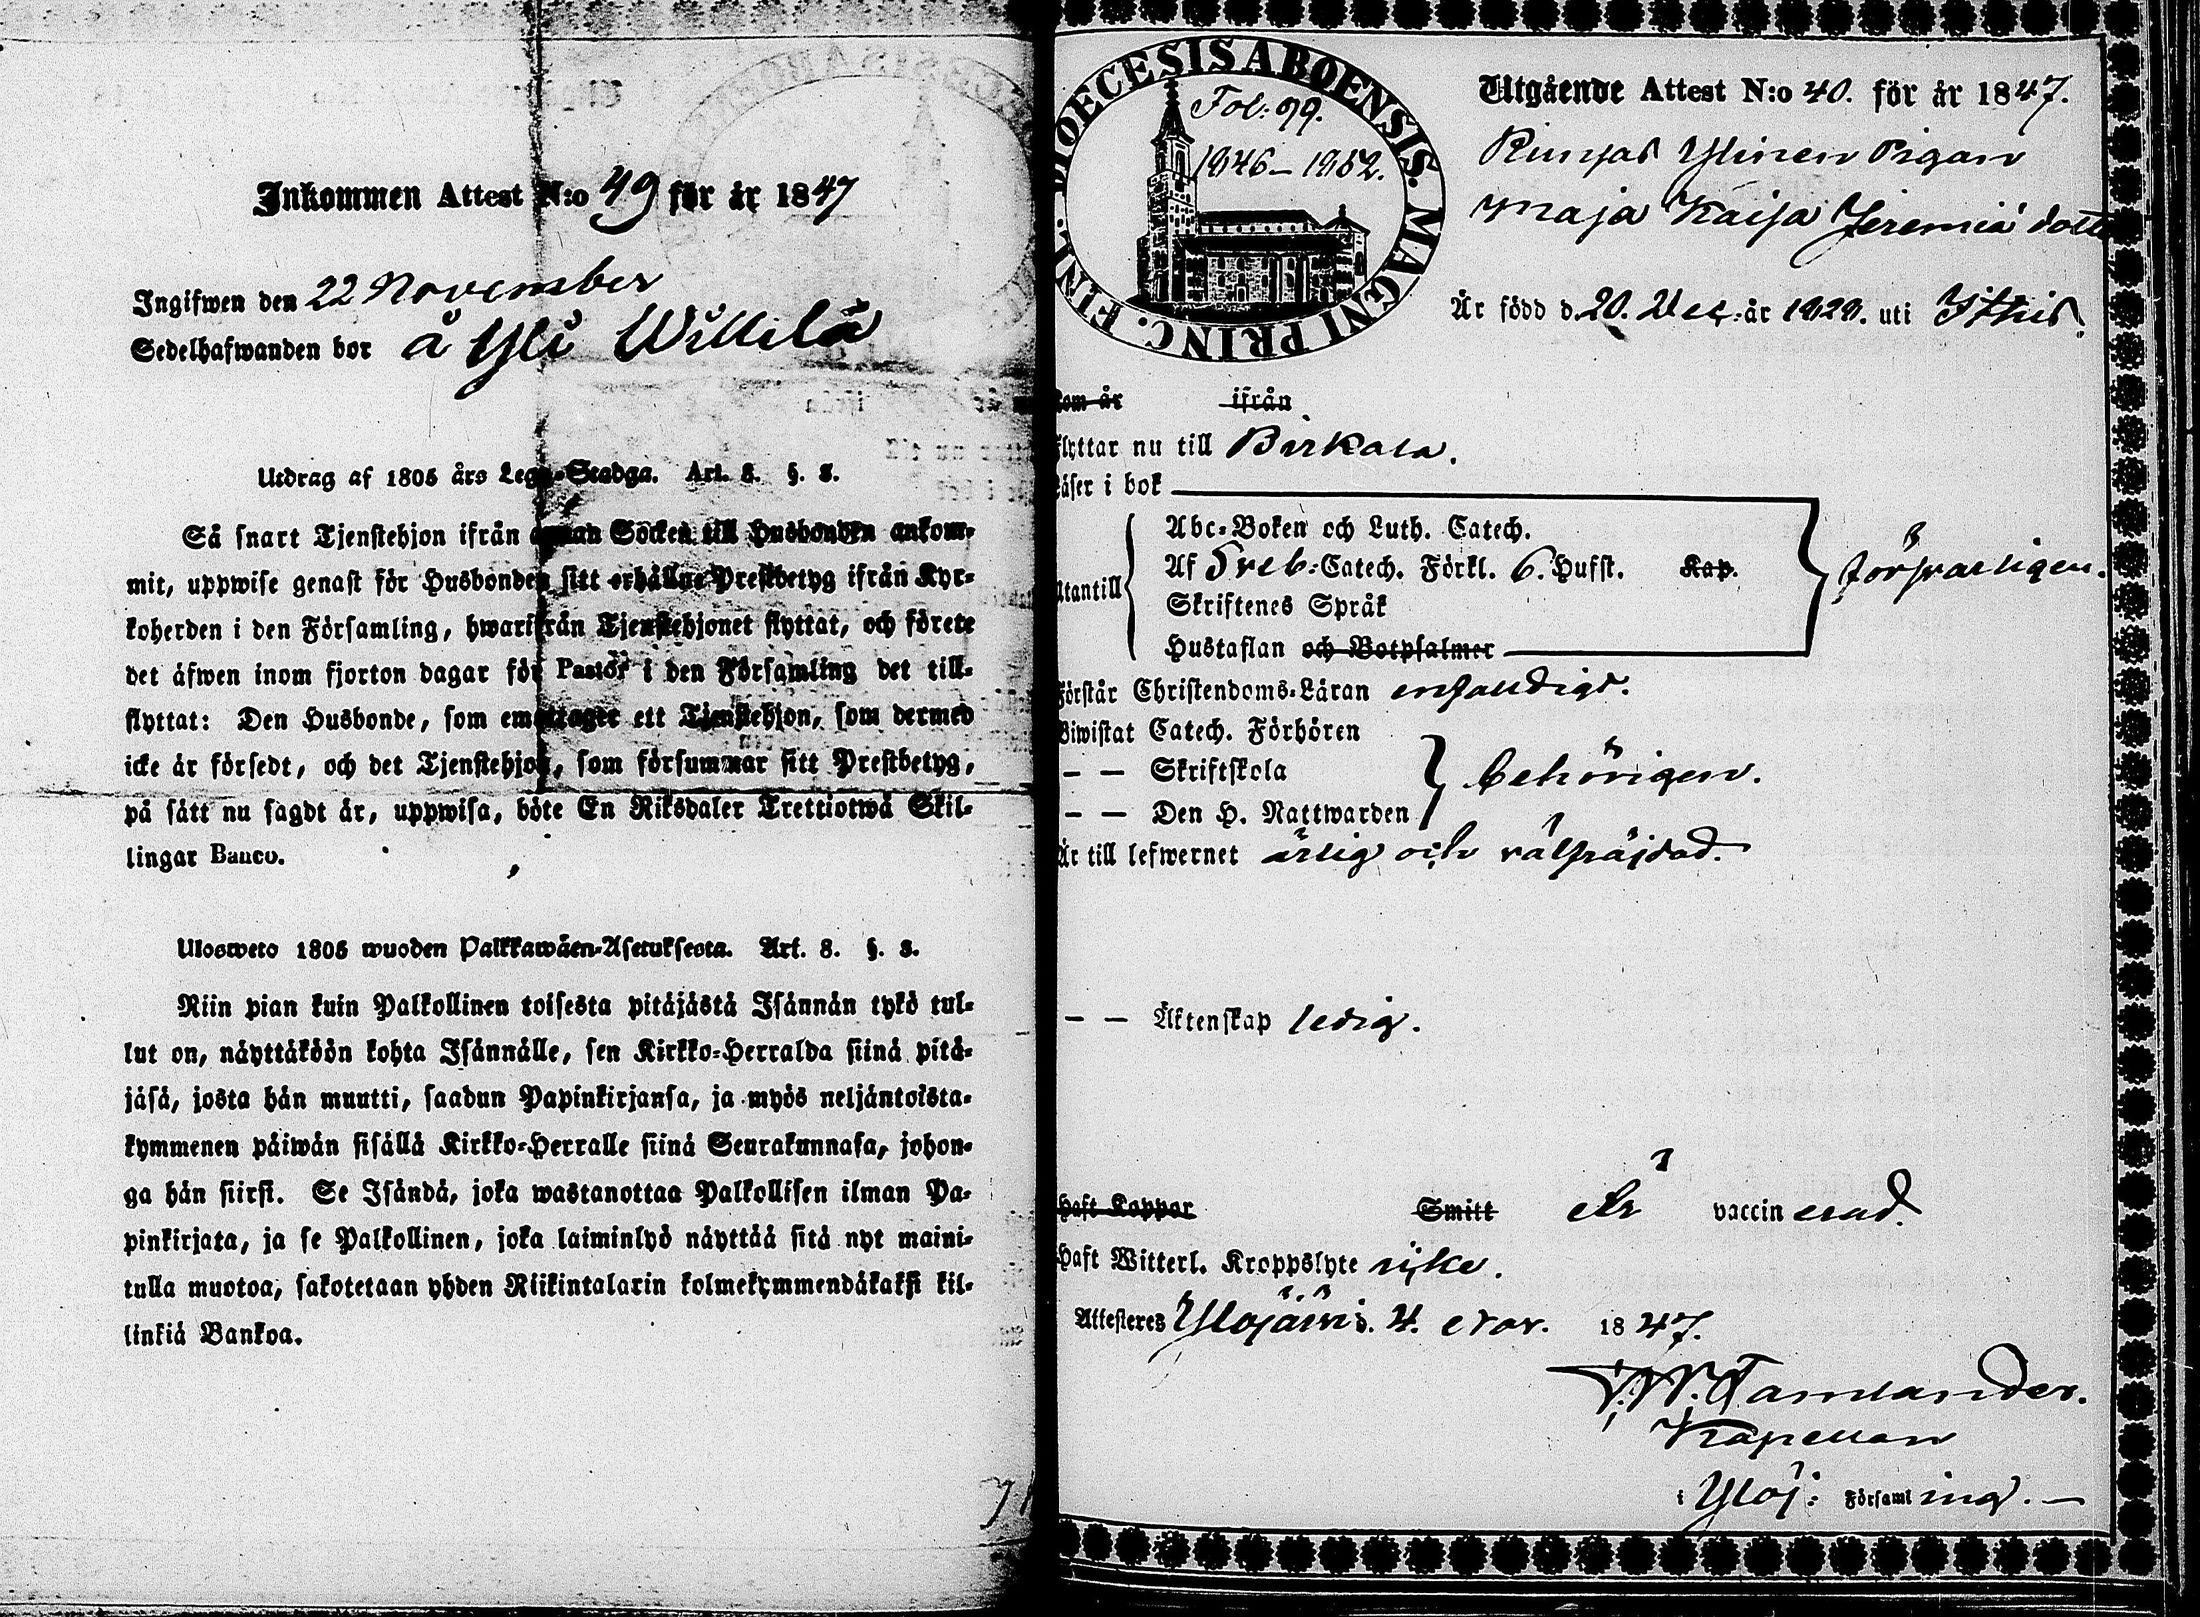 Inkommen Attest N:o 49 för år 1847
Ingifwen den 22 November
Sedelhafwanden bor å Yli Willilä
Utdrag af 1805 års Lego-Stadga. Art. 8. §. 8.
Så snart Tjenstehjon ifrån annan Socken till Husbonden ankom-
mit, uppwise genast för Husbonden sitt erhållne Prestbetyg ifrån Kyr-
koherden i den Församling, hwarifrån Tjenstehjonet flyttat, och förete
det äfwen inom fjorton dagar för Pastor i den Församling det till-
flyttat: Den Husbonde, som emottager ett Tjenstehjon, som dermed
icke är försedt, och det Tjenstehjon, som försummar sitt Prestbetyg,
på sätt nu sagdt är, uppwisa, böte En Riksdaler Trettiotwå Skil-
lingar Banco.
Ulosweto 1805 wuoden Palkkawäen-Asetuksesta. Art. 8. §. 8.
Niin pian kuin Palkollinen toisesta pitäjästä Isännän tykö tul-
lut on, näyttäköön kohta Isännälle, sen Kirkko-Herralda siinä pitä-
jäsä, josta hän muutti, saadun Papinkirjansa, ja myös neljäntoista-
kymmenen päiwän sisällä Kirkko-Herralle siinä Seurakunnasa, johon-
ga hän siirsi. Se Isändä, joka wastanottaa Palkollisen ilman Pa-
pinkirjata, ja se Palkollinen, joka laiminlyö näyttää sitä nyt maini-
tulla muotoa, sakotetaan yhden Riikintalarin kolmekymmendäkaksi kil-
linkiä Bankoa.
DIOECESIS ABOENSIS. MAGNI PRINC. FINL.
Fol: 99.
1846–1852.
Utgående Attest N:o 40. för år 1847.
Ylinen Pigan
Maja Kaisa Jeremiä dott
Är född d. 20. Dec. år 1829. uti
kom år ifrån
flyttar nu till Birkala.
Läser i bok
Utantill
Abc-Boken och Luth. Catech.
Af Sveb: Catech. Förkl. 6. Hufst. Kap.
Skriftenes Språk
Hustaflan och Botpsalmer
försvarligen.
Förstår Christendoms-Läran enfaldigt.
Biwistat Catech. Förhören
– – Skriftskola
– – Den H. Nattwarden
behörigen.
Är till lefwernet ärlig och välfräjdad.
– – Äktenskap ledig.
Haft Koppor Smitt är vaccinerad.
Haft Witterl. Kroppslyte icke.
Attesteres Ylojärvi d. 4. Nov. 1847.
Tamlander.
Kapellan
i Ylöj: Församling. –